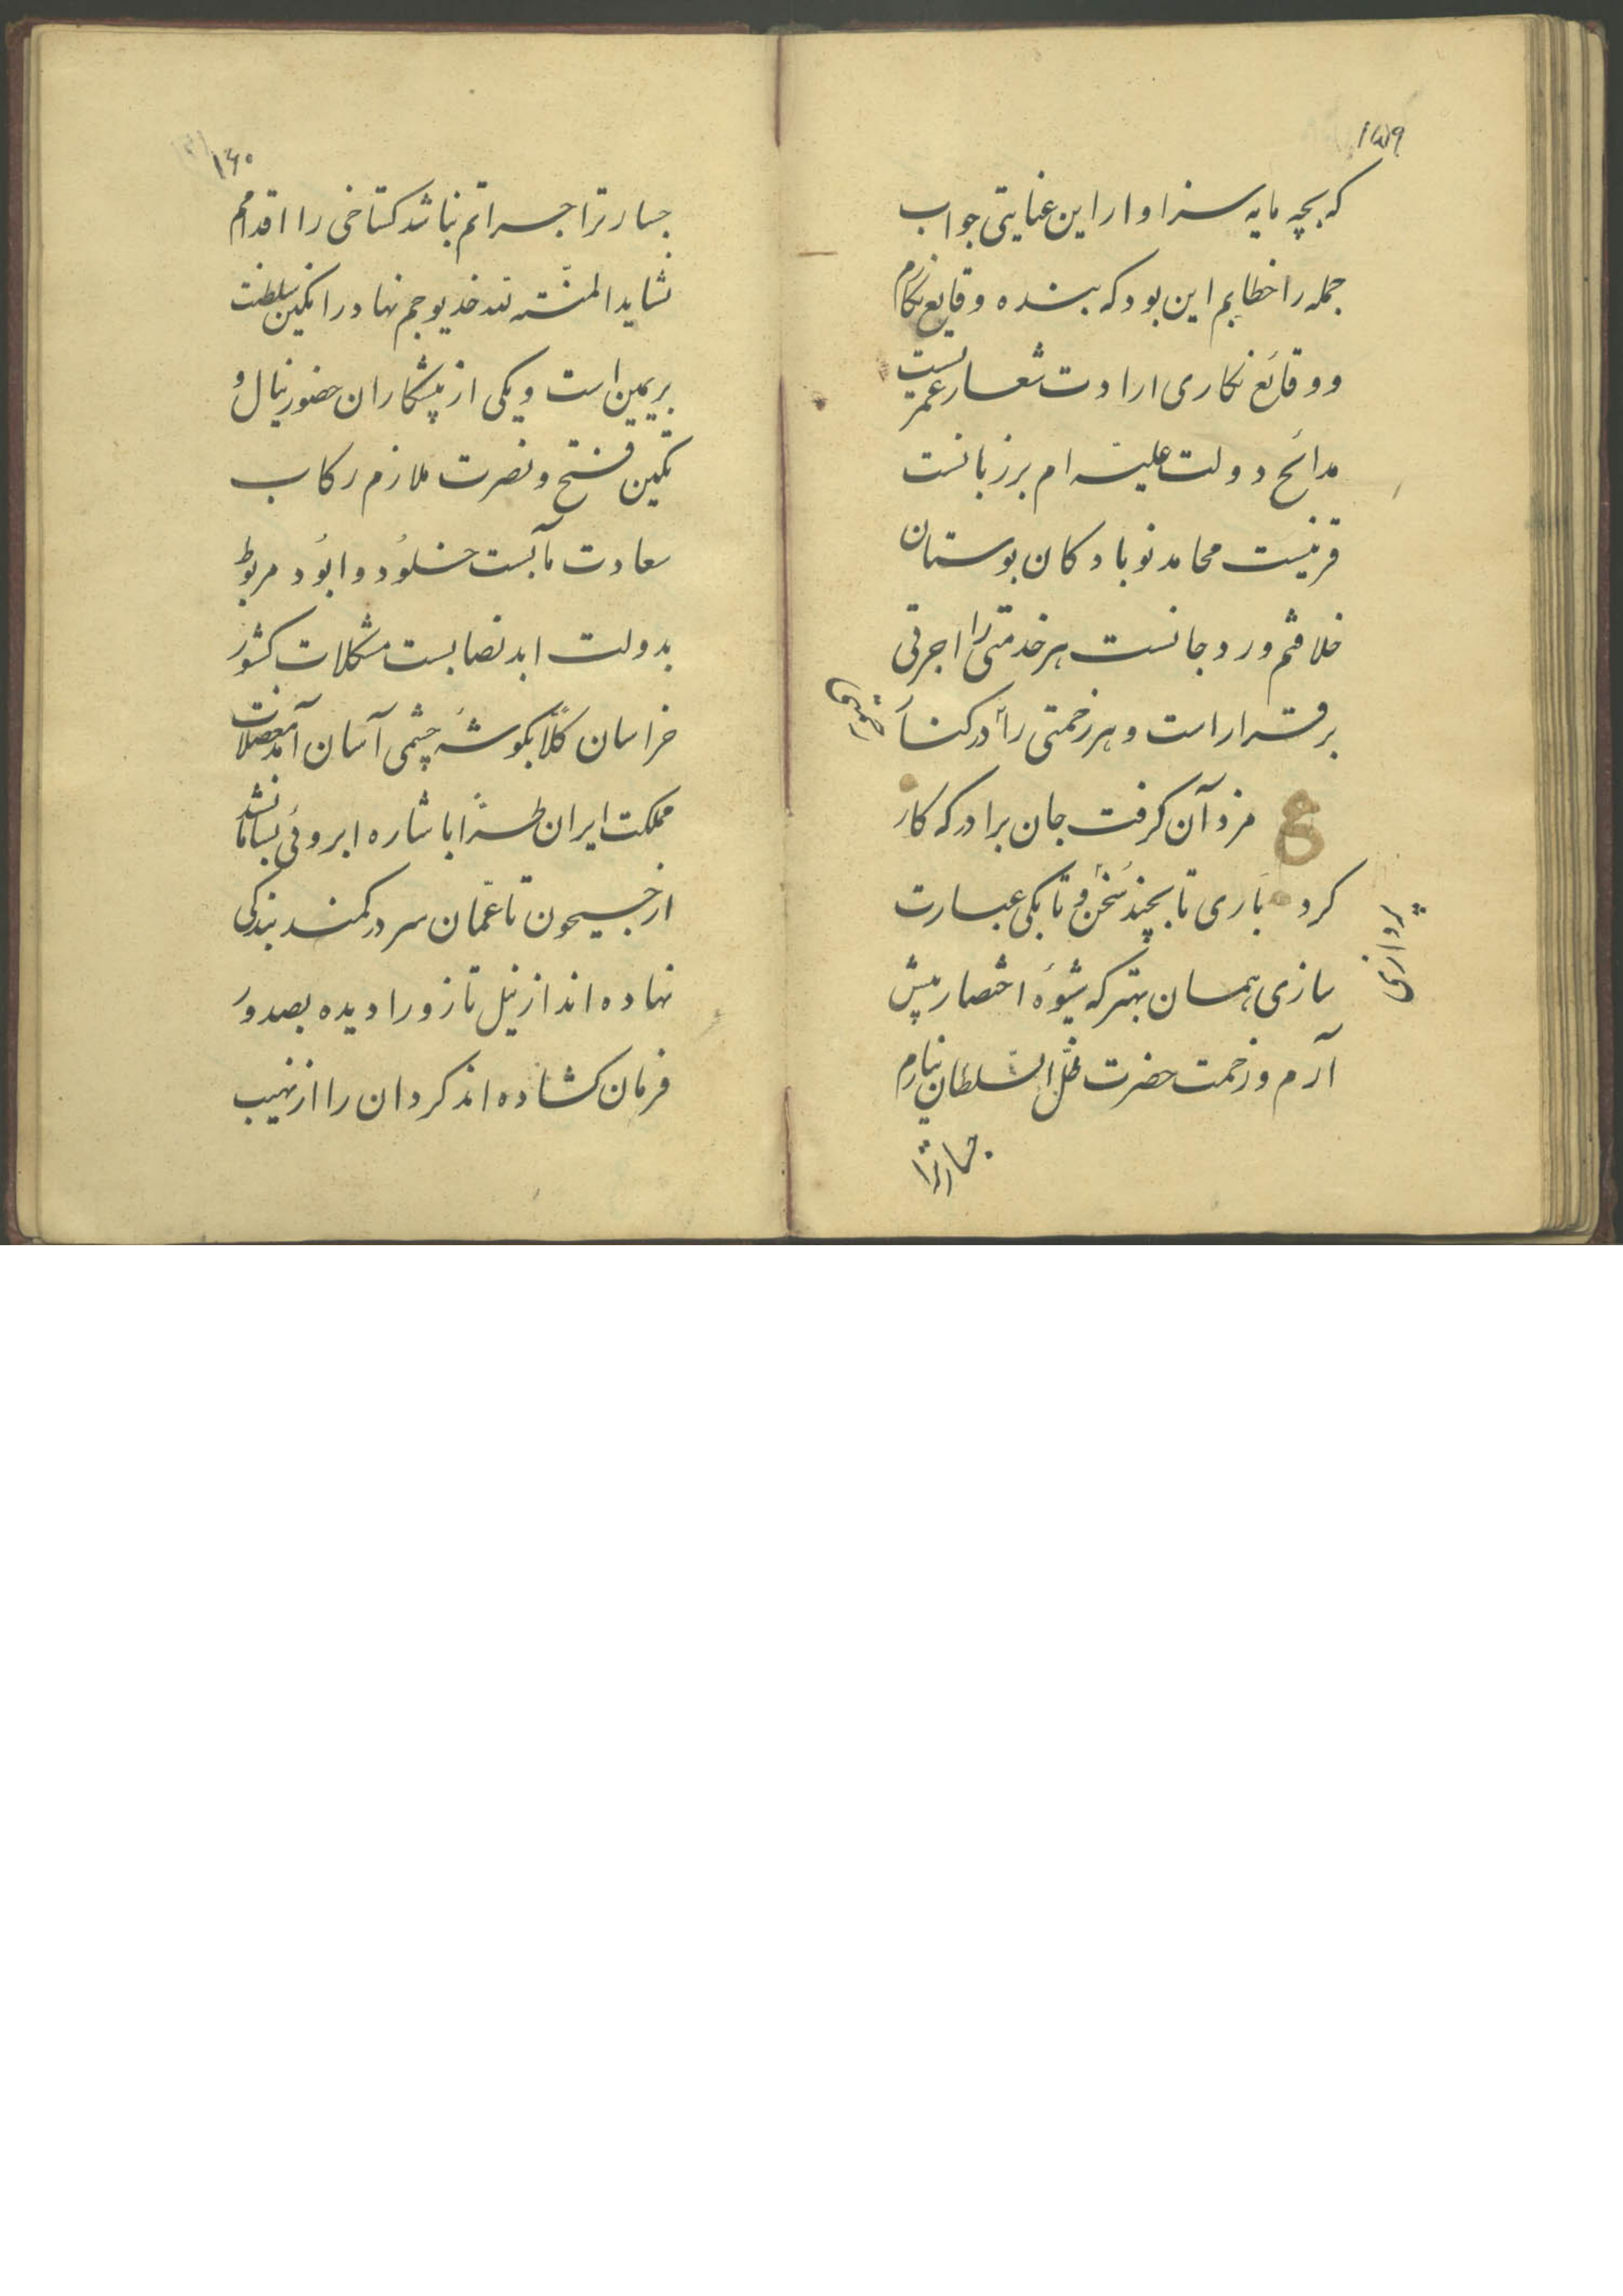 ۱۵۹
که بچه مایه سزاوار این عنایتی جواب
جمله را خطابم این بود که بنده وقایع نگارم
و وقائع نگاری ارادت شعار عمریست
مدائح دولت علیه ام برزبانست
قرنیست محامد نوبادکان بوستان
خلافتم ورد جانست هر خدمتی را اجرتی
برقرار است و هر زحمتی را در کنار
مزد آن گرفت جان برادر که کار
کرد باری تا بچند سخن و تا بکی عبارت
پردازی
سازی همان بهتر که شیوهٔ اختصار پیش
آرم و زحمت حضرت ظل السلطان نیارم
جسارترا
۱۶۰
جسارترا جسراتم نباشد کستاخی را اقدامم
نشاید المنّته لله خدیو جم نهاد را نکین سلطنت
بریمین است و یکی از پیشکاران حضور نیال و
تکین فتح و نصرت ملازم رکاب
سعادت مآبست خلُود و ابُود مربوط
بدولت ابد نصابست مشکلات کشور
خراسان کلاً بکوشهٔ چشمی آسان آمد معضلات
مملکت ایران طرّاً باشاره ابروئی بسامان شد
از جیحون تا عمّان سر در کمند بندکی
نهاده اند از نیل تا زورا دیده بصدور
فرمان کشاده اند کردان را از نهیب